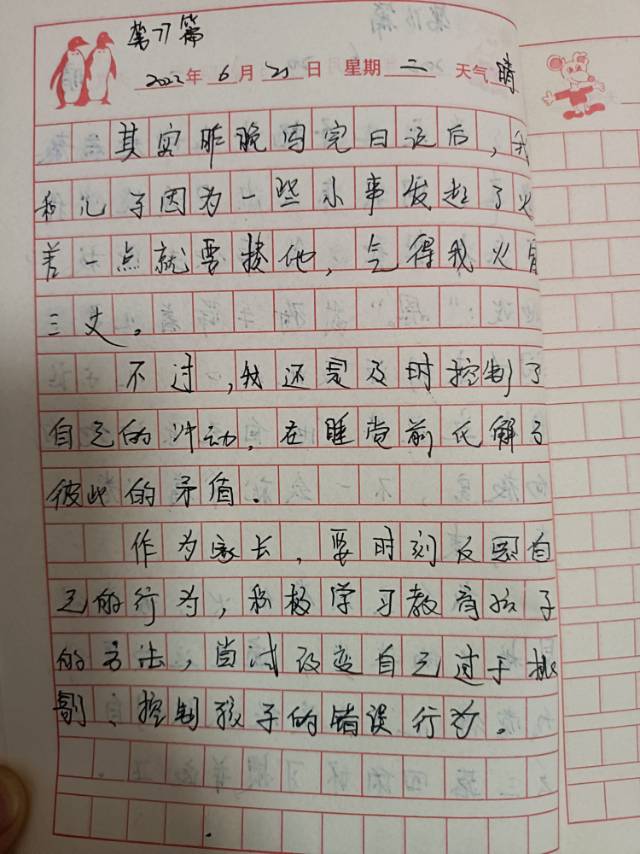 第77篇
2022年6月21日 星期二 天气晴
其实昨晚写完日记后,我
和儿子因为一些小事发起了火
差一点就要揍他,气得我火冒
三丈。
不过,我还是及时控制了
自己的冲动,在睡觉前化解了
彼此的矛盾.
作为家长,要时刻反思自
己的行为,积极学习教育孩子
的方法,自讨改变自己过于挑
剔、控制孩子的错误行为.